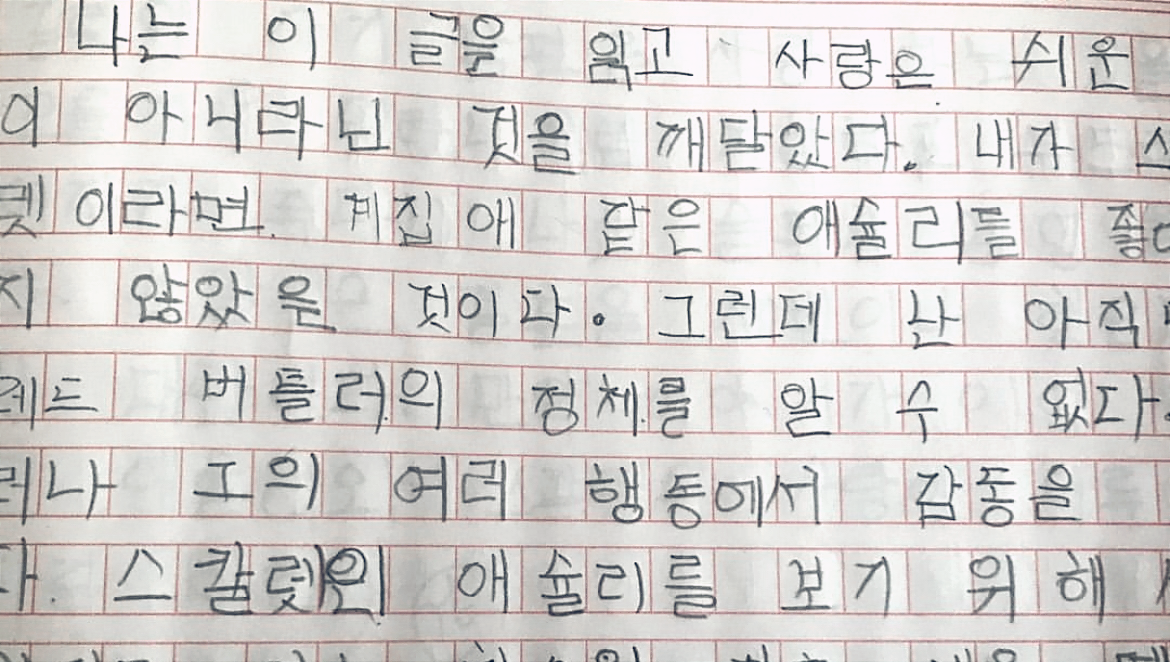 나는 이 글을 읽고 사랑은 쉬운
이 아니라닌 것을 깨달았다. 내가 스
렛이라면. 계집애 같은 애슐리를 좋아
지 않았을 것이다. 그런데 난 아직
레트 버틀러의 정체를 알 수 없다.
러나 그의 여러 행동에서 감동을
다. 스칼렛인 애슐리를 보기 위해